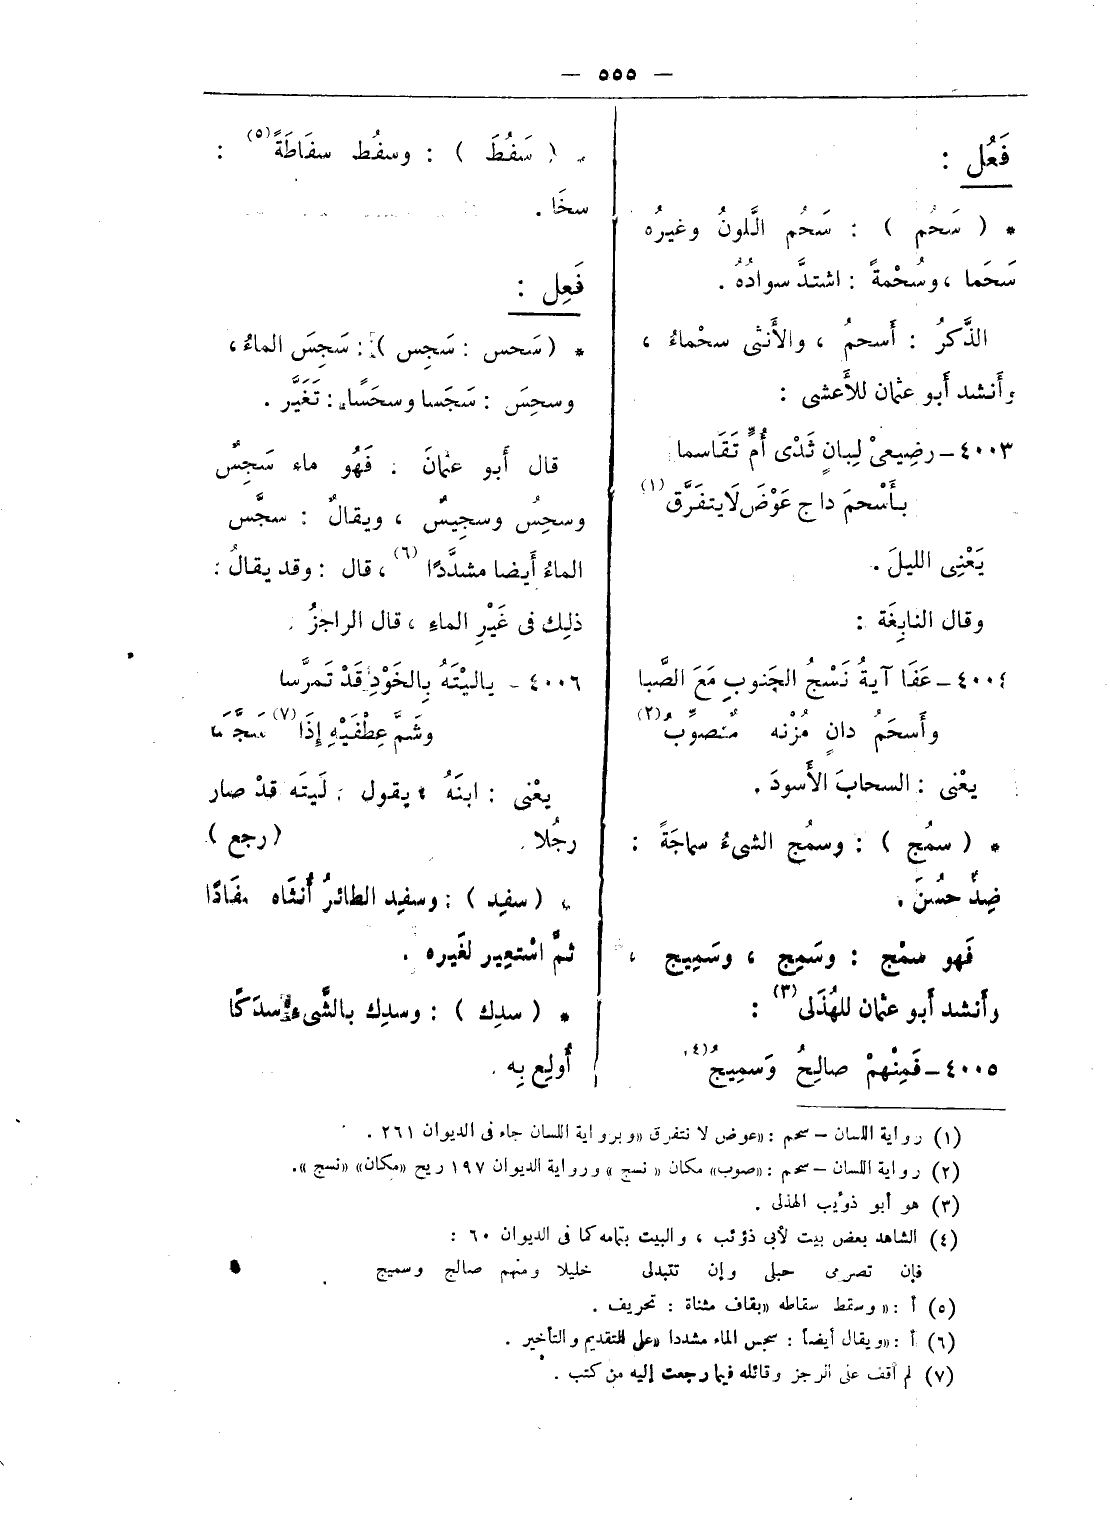 — ٥٥٥ —
فَعُل :
* ( سَحُم ) : سَحُم الَّلونُ وغيرُه
سَحَما ، وسُحْمةً : اشتدَّ سوادُهُ .
الذَّكرُ : أَسحمُ ، والأَنثى سحْماءُ ،
وأَنشد أَبو عثمان للأَعشى :
٤٠٠٣ – رضِيعىْ لِبانٍ ثَدْى أُمٍّ تَقَاسما
بأَسْحمَ داجٍ عَوْضَ لَايتفَرَّق (١)
يَعْنِى الليلَ .
وقال النابِغَة :
٤٠٠٤ – عَفَا آيةُ نَسْجُ الجَنوبِ مَعَ الصَّبا
وأَسحَمُ دانٍ مُزْنه مُنصوِّبُ (٢)
يعْنى : السحابَ الأَسودَ .
* ( سمُج ) : وسمُج الشىءُ سماجَةً :
ضِدُّ حسُنَ .
فَهو سمْج : وسَمِج ، وسَمِيج ،
وأَنشد أَبو عثمان للهُذَلى (٣) :
٤٠٠٥ – فَمِنْهمْ صالِحُ وَسمِيجُ (٤)
* ( سَفُطَ ) : وسفُط سفَاطَةً (٥) :
سخَا .
فَعِل :
* ( سَحس : سَجِس ) : سَجِسَ الماءُ ،
وسحِسَ : سَجَسا وسحَسًا : تَغَيَّر .
قال أَبو عثمانَ : فَهُو ماء سَجِسٌ
وسحِسُ وسجِيسٌ ، ويقالُ : سجَّس
الماءُ أَيضا مشدَّدًا (٦) ، قال : وقد يقالُ :
ذلِك فى غَيْرِ الماءِ ، قال الراجزُ :
٤٠٠٦ – ياليْتَهُ بِالخَوْدِ قَدْ تمرَّسا
وشَمَّ عِطْفَيْهِ إِذَا (٧) سَجَّسَا
يعْنى : ابنَهُ ، يقول : لَيتَه قدْ صار
رجُلا . (رجع)
* ( سفِد ) : وسفِد الطائرُ أُنثَاه سفَادًا
ثمَّ اسْتعِير لغَيره .
* ( سدِك ) : وسدِك بالشَّىءِ سدَكًا
أُولِع بِه .
(١) رواية اللسان – سحم : «عوض لا نتفرق» وبرواية اللسان جاء فى الديوان ٢٦١ .
(٢) رواية اللسان – سحم : «صوب» مكان «نسج» ورواية الديوان ١٩٧ ريح «مكان» «نسج» .
(٣) هو أبو ذؤيب الهذلى .
(٤) الشاهد بعض بيت لأبى ذؤئب ، والبيت بتمامه كما فى الديوان ٦٠ :
فإن تصرمى حبلى وإن تتبدلى خليلا ومنهم صالج وسميج
(٥) أ : «وسقط سقاطه» بقاف مثناة : تحريف .
(٦) أ : «ويقال أيضاً : سجس الماء مشددا» على للتقديم والتأخير .
(٧) لم أقف على الرجز وقائله فيما رجعت إليه من كتب .